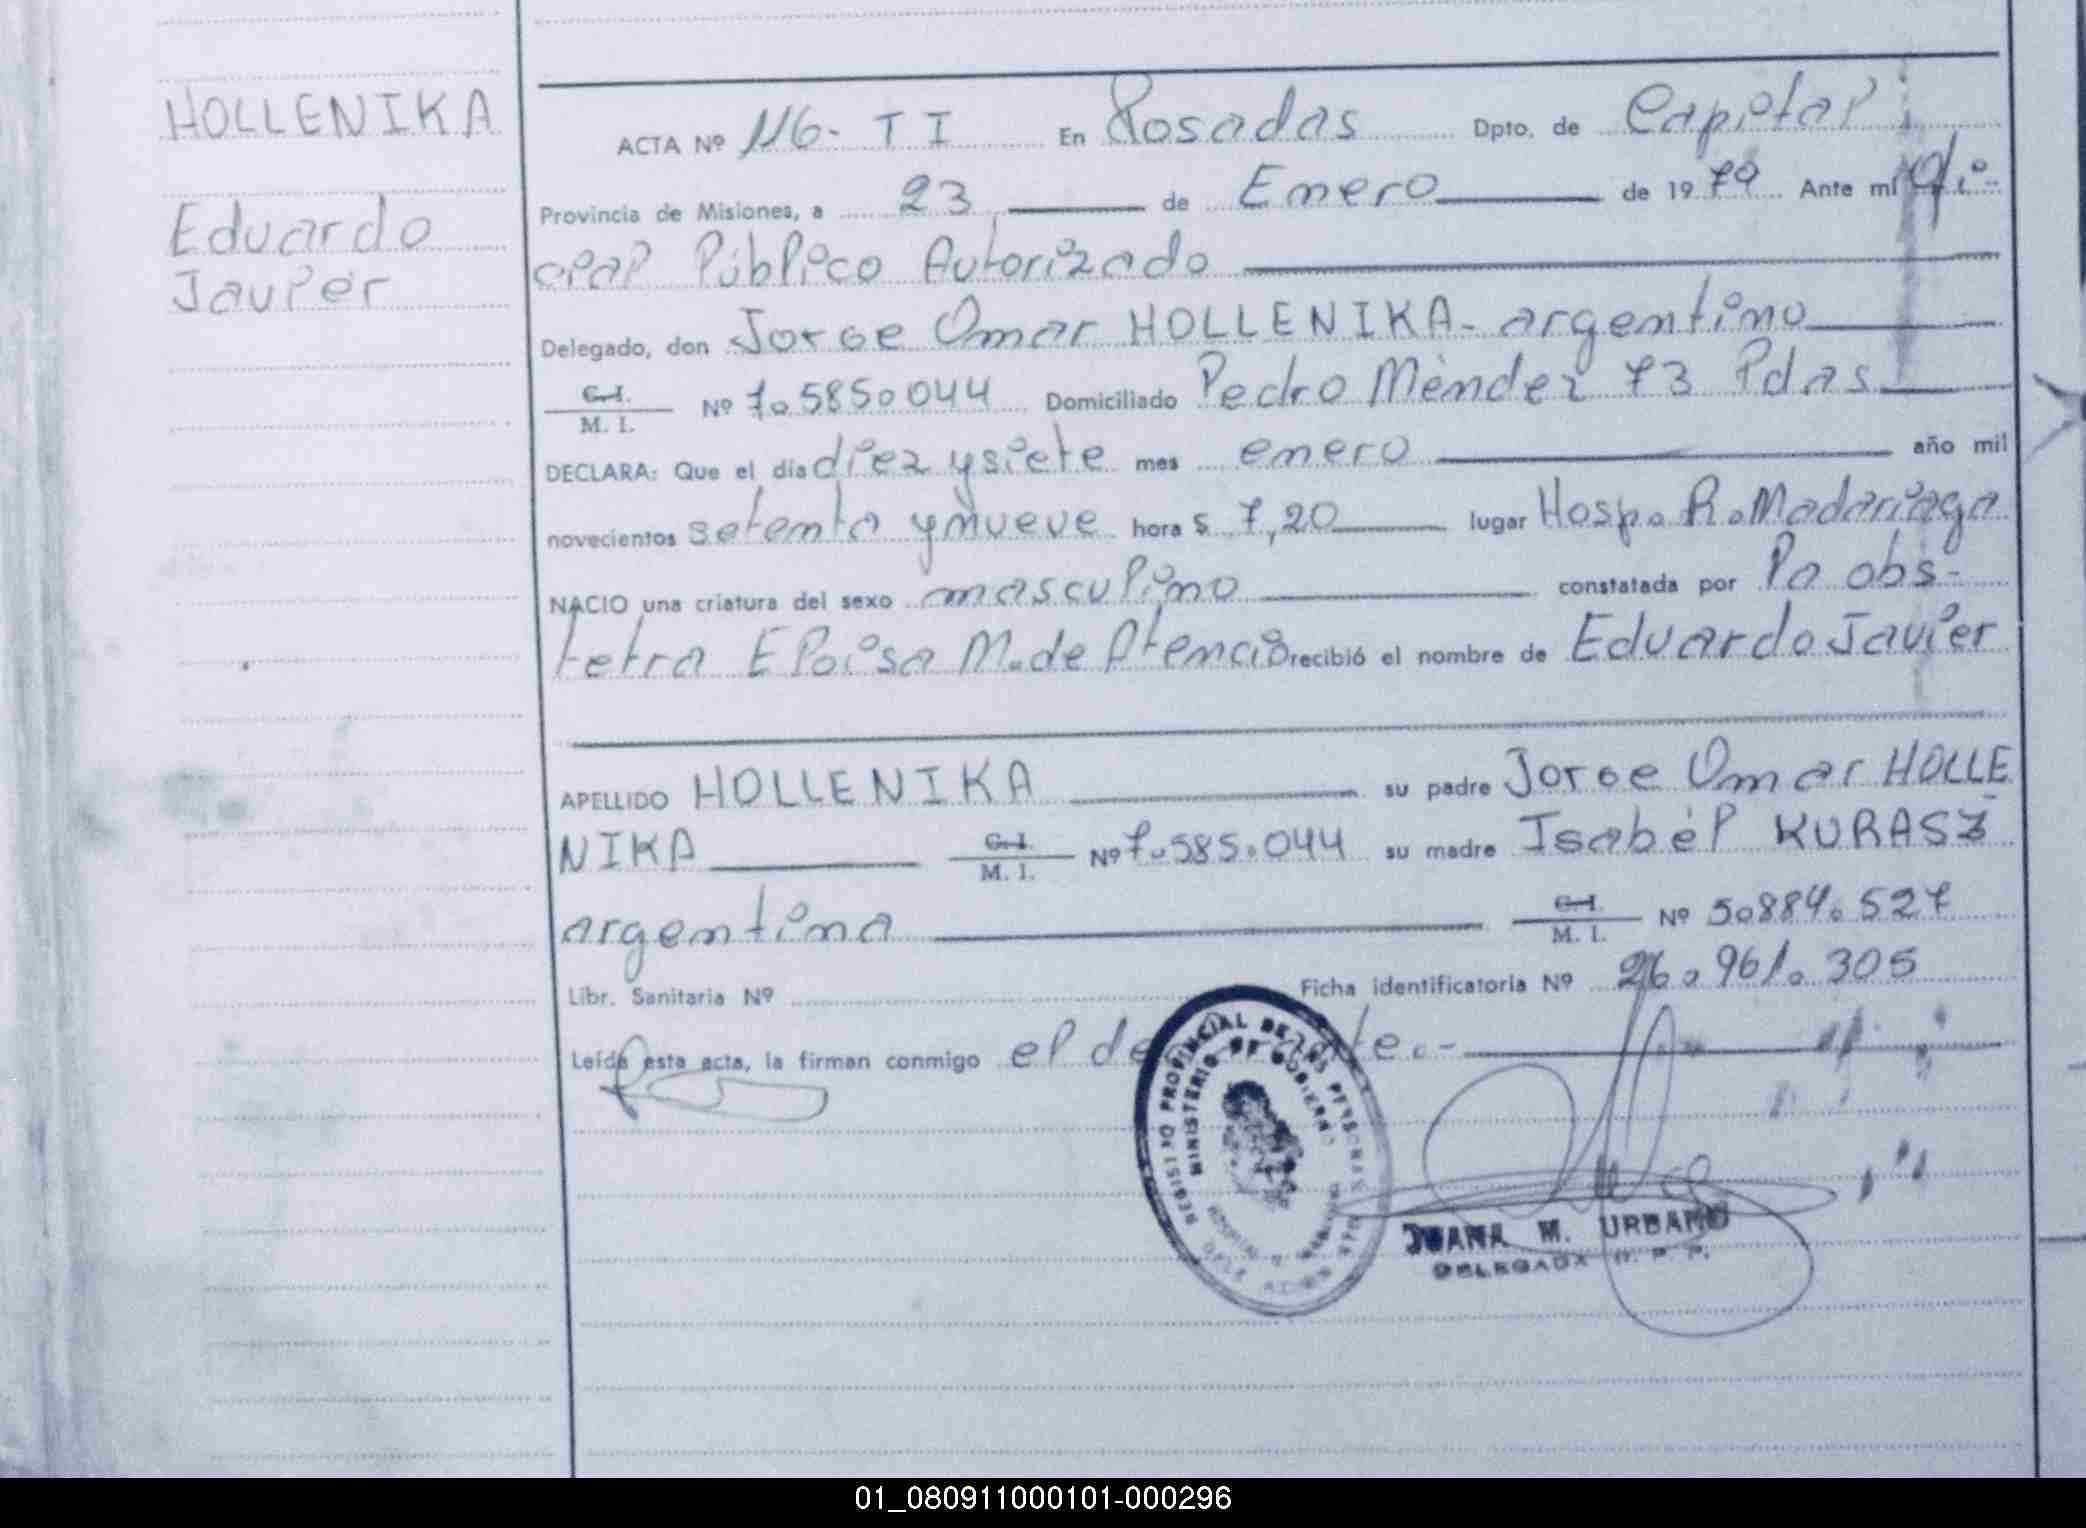 HOLLENIKA
Eduardo
Javier
ACTA Nº 116- T I En Posadas Dpto. de Capital
Provincia de Misiones, a 23 de Enero de 1979 Ante mí Ofi-
cial Público Autorizado
Delegado, don Jorge Omar HOLLENIKA- argentino
C.I. M. I. Nº 7.585.044 Domiciliado Pedro Méndez 73 Pdas
DECLARA: Que el día diez y siete mes enero año mil
novecientos setenta y nueve hora s 7,20 lugar Hosp. R. Madariaga
NACIO una criatura del sexo masculino constatada por la obs-
tetra Eloisa M. de Atencio recibió el nombre de Eduardo Javier
APELLIDO HOLLENIKA su padre Jorge Omar HOLLE
NIKA C.I. M. I. Nº 7.585.044 su madre Isabél KURASZ
argentina C.I. M. I. Nº 5.884.527
Libr. Sanitaria Nº Ficha identificatoria Nº 26.961.305
Leída esta acta, la firman conmigo el
REGISTRO PROVINCIAL DE LAS PERSONAS
MINISTERIO DE GOBIERNO
JUANA M. URBANO
DELEGADA R. P. P.
01_080911000101-000296